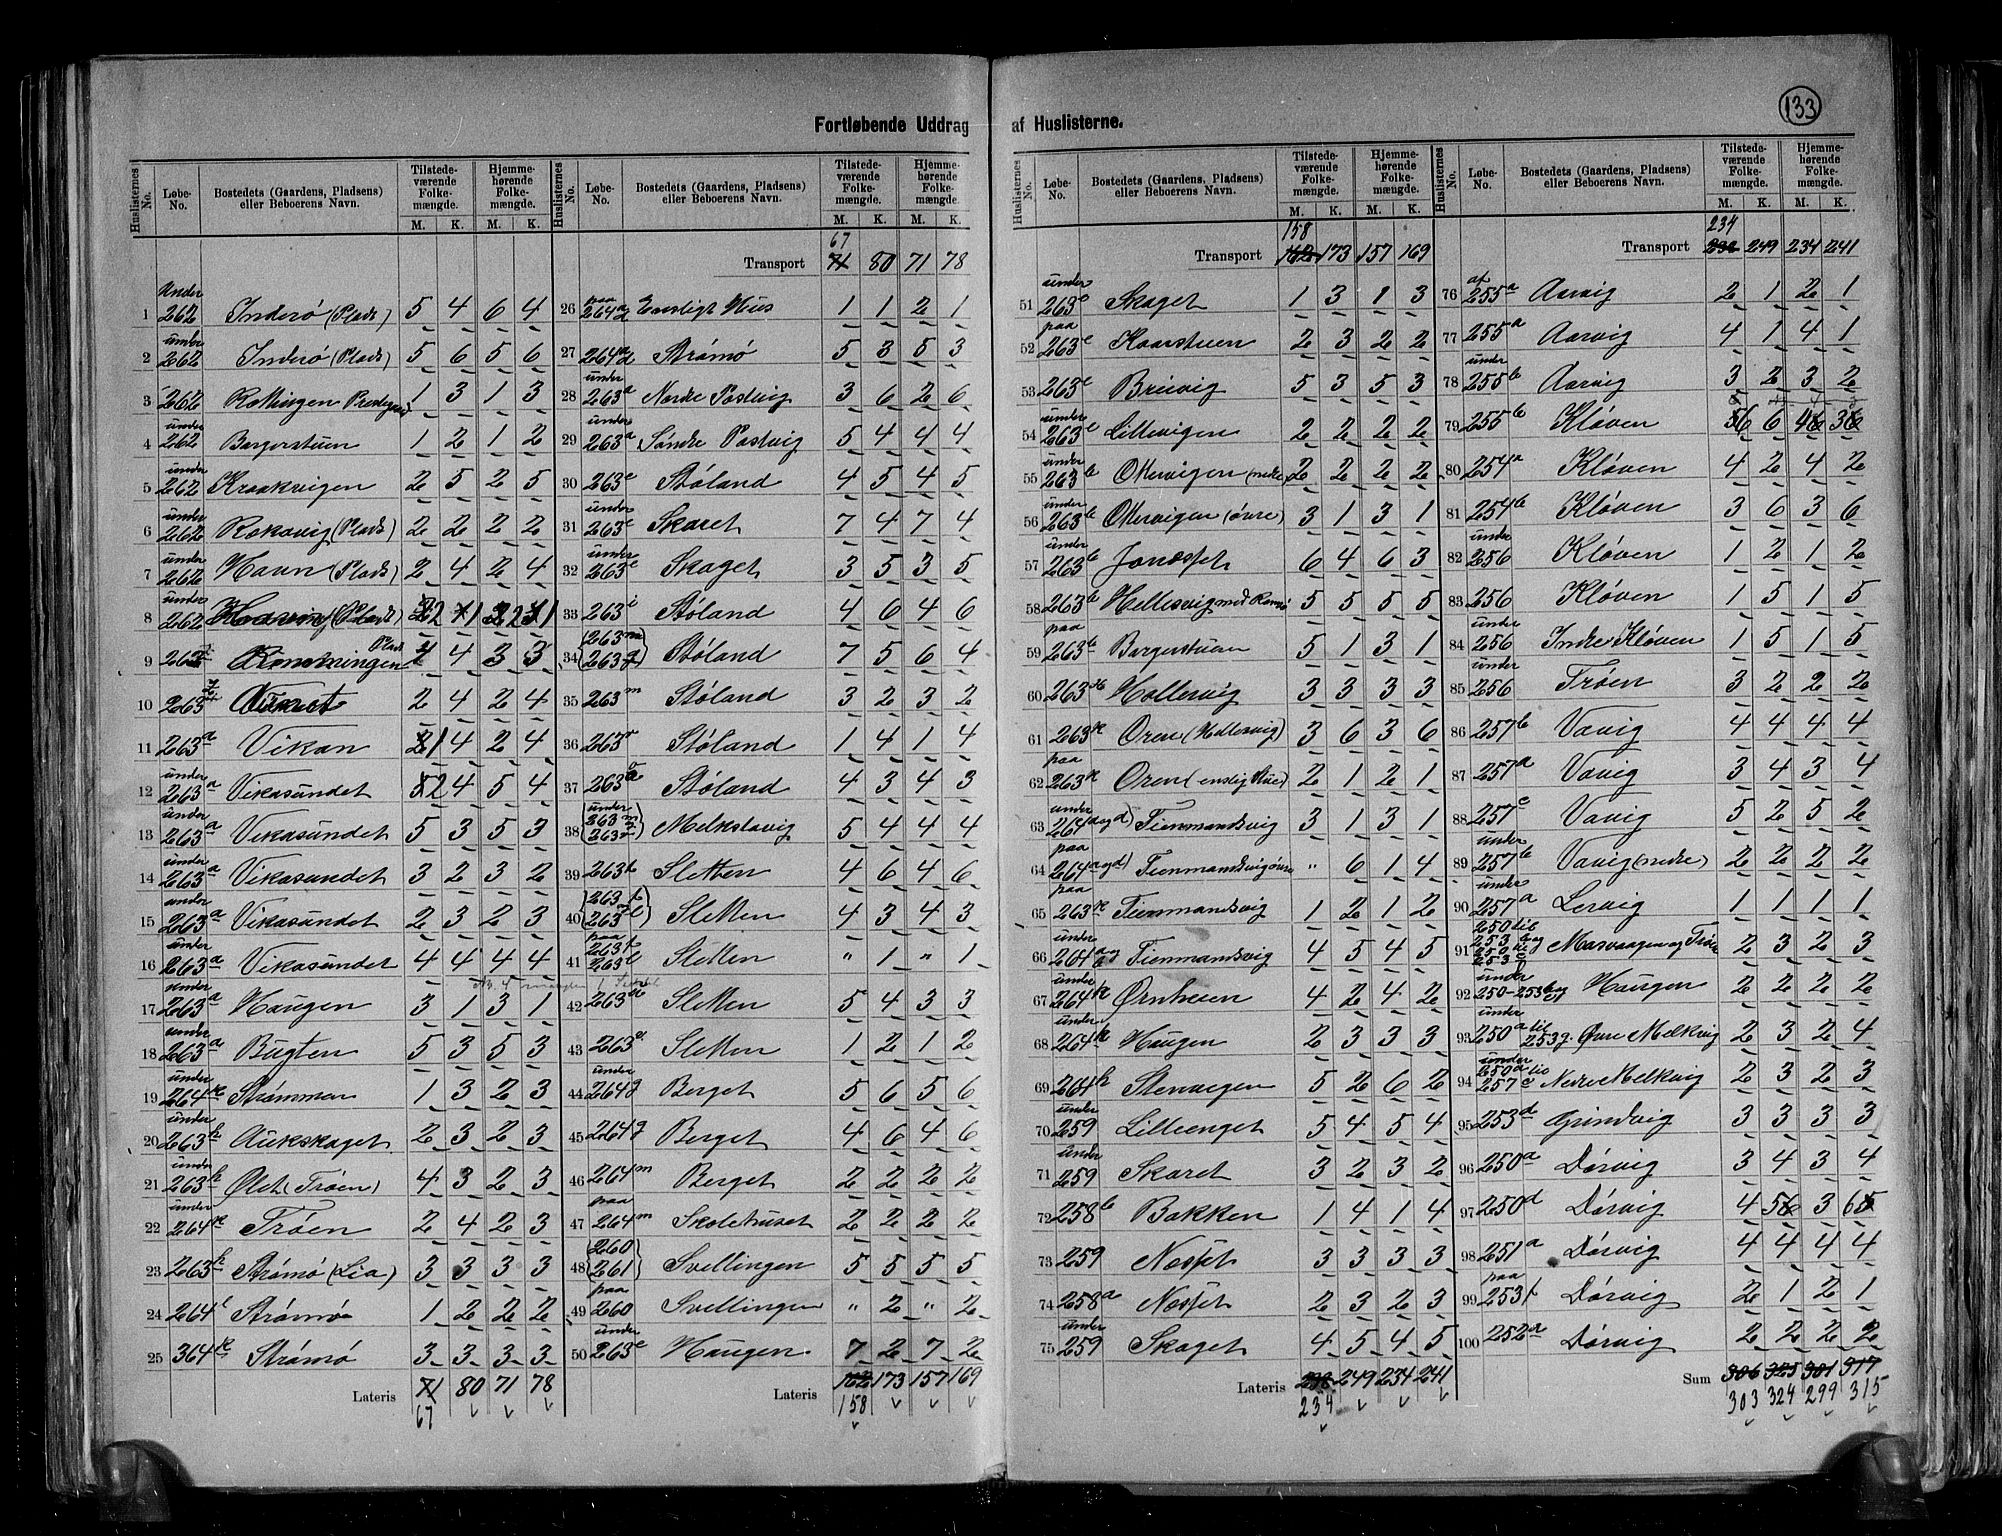 133
Fortløbende Uddrag af Huslisterne.
Huslisternes No. | Løbe-No. | Bostedets (Gaardens, Pladsens) eller Beboerens Navn. | Tilstedeværende Folkemængde. M. K. | Hjemmehørende Folkemængde. M. K.
1 | Under 262 | Inderö (Plads) | 5 | 4 | 6 | 4
2 | under 262 | Inderö (Plads) | 5 | 6 | 5 | 6
3 | 262 | 1 | 3 | 1 | 3
4 | under 262 | Bergerstuen | 1 | 2 | 1 | 2
5 | under 262 | Kraakvigen | 2 | 5 | 2 | 5
6 | under 262 | Rokavig (Plads) | 2 | 2 | 2 | 2
7 | under 262 | Havn (Plads) | 2 | 4 | 2 | 4
8 | under 262 | (Plads) | 2 | 1 | 2 | 1
9 | Plads | 4 | 3 | 3
10 | 263 | 2 | 4 | 2 | 4
11 | 263a | Vikan | 1 | 4 | 2 | 4
12 | under 263a | Vikasundet | 2 | 4 | 5 | 4
13 | under 263a | Vikasundet | 5 | 3 | 5 | 3
14 | under 263a | Vikasundet | 3 | 2 | 3 | 2
15 | under 263a | Vikasundet | 2 | 3 | 2 | 3
16 | under 263a | Vikasundet | 4 | 4 | 4 | 4
17 | under 263a | Haugen | 3 | 1 | 3 | 1
18 | under 263a | Bugten | 5 | 3 | 5 | 3
19 | under 264k | Strömmen | 1 | 3 | 2 | 3
20 | under 263h | Aukskaget | 2 | 3 | 2 | 3
21 | under 263h | Ølet (Trøen) | 4 | 3 | 2 | 3
22 | under 264k | Trøen | 2 | 4 | 2 | 3
23 | 263h | Strömö (Lia) | 3 | 3 | 3 | 3
24 | 264l | Strömö | 1 | 2 | 2 | 2
25 | 364k | Strömö | 3 | 3 | 3 | 3
Lateris | 71 | 80 | 71 | 78
67
Huslisternes No. | Løbe-No. | Bostedets (Gaardens, Pladsens) eller Beboerens Navn. | Tilstedeværende Folkemængde. M. K. | Hjemmehørende Folkemængde. M. K.
67
Transport | 71 | 80 | 71 | 78
26 | paa 264 | Hus | 1 | 1 | 2 | 1
27 | 264 | Strömö | 5 | 3 | 5 | 3
28 | under 263a | Nordre Postvig | 3 | 6 | 2 | 6
29 | under 263a | Söndre Postvig | 5 | 4 | 4 | 4
30 | 263e | Støland | 4 | 5 | 4 | 5
31 | under 263e | Skaret | 7 | 4 | 7 | 4
32 | under 263e | Skaget | 3 | 5 | 3 | 5
33 | 263i | Støland | 4 | 6 | 4 | 6
34 | 263m 263 | Støland | 7 | 5 | 6 | 4
35 | 263m | Støland | 3 | 2 | 3 | 2
36 | 263 | Støland | 1 | 4 | 1 | 4
37 | 263 | Støland | 4 | 3 | 4 | 3
38 | under 263m 263 | Melkstavig | 5 | 4 | 4 | 4
39 | 263 | Sletten | 4 | 6 | 4 | 6
40 | 263 263 | Sletten | 4 | 3 | 4 | 3
41 | paa 263 263 | Sletten | " | 1 | " | 1
42 | 263 | Sletten | 5 | 4 | 3 | 3
43 | 263 | Sletten | 1 | 2 | 1 | 2
44 | under 264g | Berget | 5 | 6 | 5 | 6
45 | 264g | Berget | 4 | 6 | 4 | 6
46 | 264m | Berget | 2 | 2 | 2 | 2
47 | paa 264m | Skolehuset | 2 | 2 | 2 | 2
48 | 260 261 | Svellingen | 5 | 5 | 5 | 5
49 | paa 260 | Svellingen | " | 2 | " | 2
50 | under 263e | Haugen | 7 | 2 | 7 | 2
Lateris | 162 | 173 | 157 | 169
158
Huslisternes No. | Løbe-No. | Bostedets (Gaardens, Pladsens) eller Beboerens Navn. | Tilstedeværende Folkemængde. M. K. | Hjemmehørende Folkemængde. M. K.
158
Transport | 162 | 173 | 157 | 169
51 | under 263e | Skaget | 1 | 3 | 1 | 3
52 | paa 263e | Kaarstuen | 2 | 3 | 2 | 2
53 | 263e | Breivig | 5 | 3 | 5 | 3
54 | under 263e | Lillevigen | 2 | 2 | 2 | 2
55 | under 263b | Ottervigen (nedre) | 2 | 2 | 2 | 2
56 | under 263b | Ottervigen (øvre) | 3 | 1 | 3 | 1
57 | under 263b | Jonæsset | 6 | 4 | 6 | 3
58 | 263b | Hellesvig med | 5 | 5 | 5 | 5
59 | paa 263b | Bergerstuen | 5 | 1 | 3 | 1
60 | 263 | Hollervig | 3 | 3 | 3 | 3
61 | 263k | Oren (Hellesvig) | 3 | 6 | 3 | 6
62 | paa 263k | Oren (enslig Stue) | 2 | 1 | 2 | 1
63 | under 264 (a og d) | Tienmandsvig | 3 | 1 | 3 | 1
64 | paa 264 a og d | Tienmandsvig øvre | " | 6 | 1 | 4
65 | paa 263k | Tienmandsvig | 1 | 2 | 1 | 2
66 | under 264 | Tienmandsvig | 4 | 5 | 4 | 5
67 | under 264k | Ørnheien | 4 | 2 | 4 | 2
68 | under 264k | Haugen | 2 | 3 | 3 | 3
69 | 264h | Stenvegen | 5 | 2 | 6 | 2
70 | under 259 | Lilleenget | 5 | 4 | 5 | 4
71 | under 259 | Skaret | 3 | 2 | 3 | 2
72 | 258b | Bakken | 1 | 4 | 1 | 4
73 | 259 | Næsset | 3 | 3 | 3 | 3
74 | 258a | Næsset | 2 | 3 | 2 | 3
75 | under 259 | Skaget | 4 | 5 | 4 | 5
Lateris | 238 | 249 | 234 | 241
234
Huslisternes No. | Løbe-No. | Bostedets (Gaardens, Pladsens) eller Beboerens Navn. | Tilstedeværende Folkemængde. M. K. | Hjemmehørende Folkemængde. M. K.
234
Transport | 238 | 249 | 234 | 241
76 | af 255a | Aarvig | 2 | 1 | 2 | 1
77 | 255a | Aarvig | 4 | 1 | 4 | 1
78 | under 255b | Aarvig | 3 | 2 | 3 | 2
79 | 255b | Kløven | 6 | 6 | 4 | 3
80 | 254a | Kløven | 4 | 2 | 4 | 2
81 | 254b | Kløven | 3 | 6 | 3 | 6
82 | under 256 | Kløven | 1 | 2 | 1 | 2
83 | 256 | Kløven | 1 | 5 | 1 | 5
84 | under 256 | Indre Kløven | 1 | 5 | 1 | 5
85 | under 256 | Trøen | 3 | 2 | 2 | 2
86 | 257b | Vavig | 4 | 4 | 4 | 4
87 | 257a | Vavig | 3 | 4 | 3 | 4
88 | 257c | Vavig | 5 | 2 | 5 | 2
89 | under 257b | Vavig (nedre) | 2 | 2 | 2 | 2
90 | under 257a | Lervig | 1 | 1 | 1 | 1
91 | 250 til 253 | Masvaagen og Trøen | 2 | 3 | 2 | 3
92 | under 250-253 | Haugen | 2 | 2 | 2 | 2
93 | under 250a til 253g | Øvre Melkvig | 2 | 3 | 2 | 4
94 | under 250a til 257c | Nedre Melkvig | 2 | 3 | 2 | 3
95 | 253d | Grindvig | 3 | 3 | 3 | 3
96 | 250a | Dørvig | 3 | 4 | 3 | 4
97 | 250d | Dørvig | 4 | 5 | 3 | 6
98 | 251a | Dørvig | 4 | 4 | 4 | 4
99 | paa 253f | Dørvig | 2 | 1 | 2 | 1
100 | 252a | Dørvig | 2 | 2 | 2 | 2
Sum | 306 | 325 | 301 | 317
303 | 324 | 299 | 315